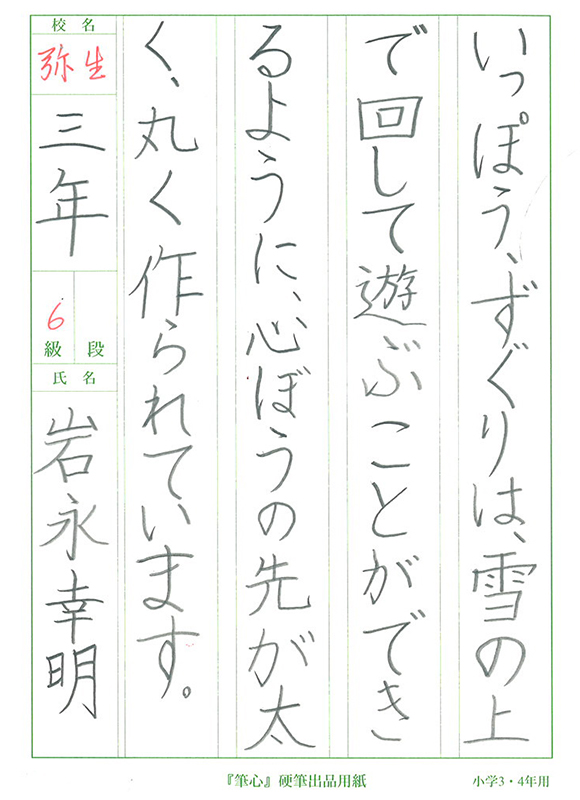 いっぽう、ずぐりは、雪の上
で回して遊ぶことができ
るように、心ぼうの先が太
く、丸く作られています。
校名
弥生
三年
6
級 段
氏名
岩永幸明
『筆心』硬筆出品用紙
小学3・4年用